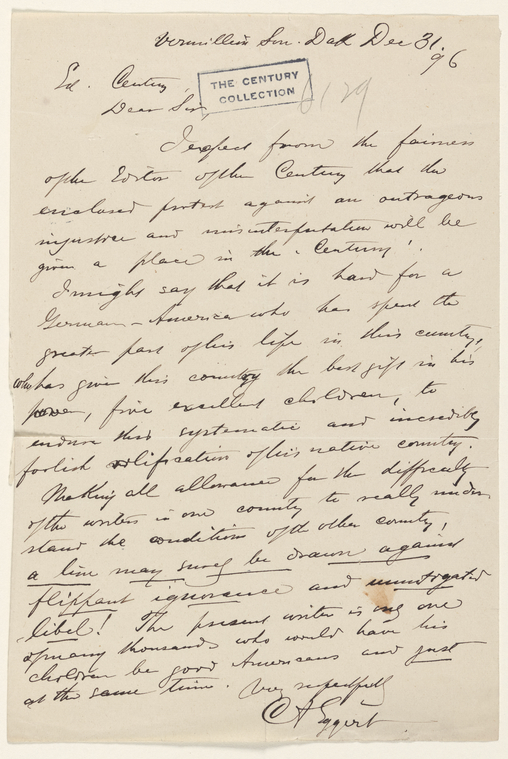 Vermillion Sou. Dak Dec 31.
96
Ed. Century,
Dear Sir,
THE CENTURY
COLLECTION
I expect from the fairness
of the Editor of the Century that the
enclosed protest against an outrageous
injustice and misinterpretation will be
given a place in the "Century".
I might say that it is hard for a
German-America who has spent the
greater part of his life in this country,
who has given this country the best gift in his
power, five excellent children, to
endure this systematic and incredibly
foolish vilification of his native country.
Making all allowance for the difficulty
of the writers in one country to really under
stand the conditions of the other country,
a line may surely be drawn against
flippant ignorance and unmitigated
libel! The present writer is only one
of many thousands who would have his
children be good Americans and just
at the same time. Very respectfully
C A Eggert